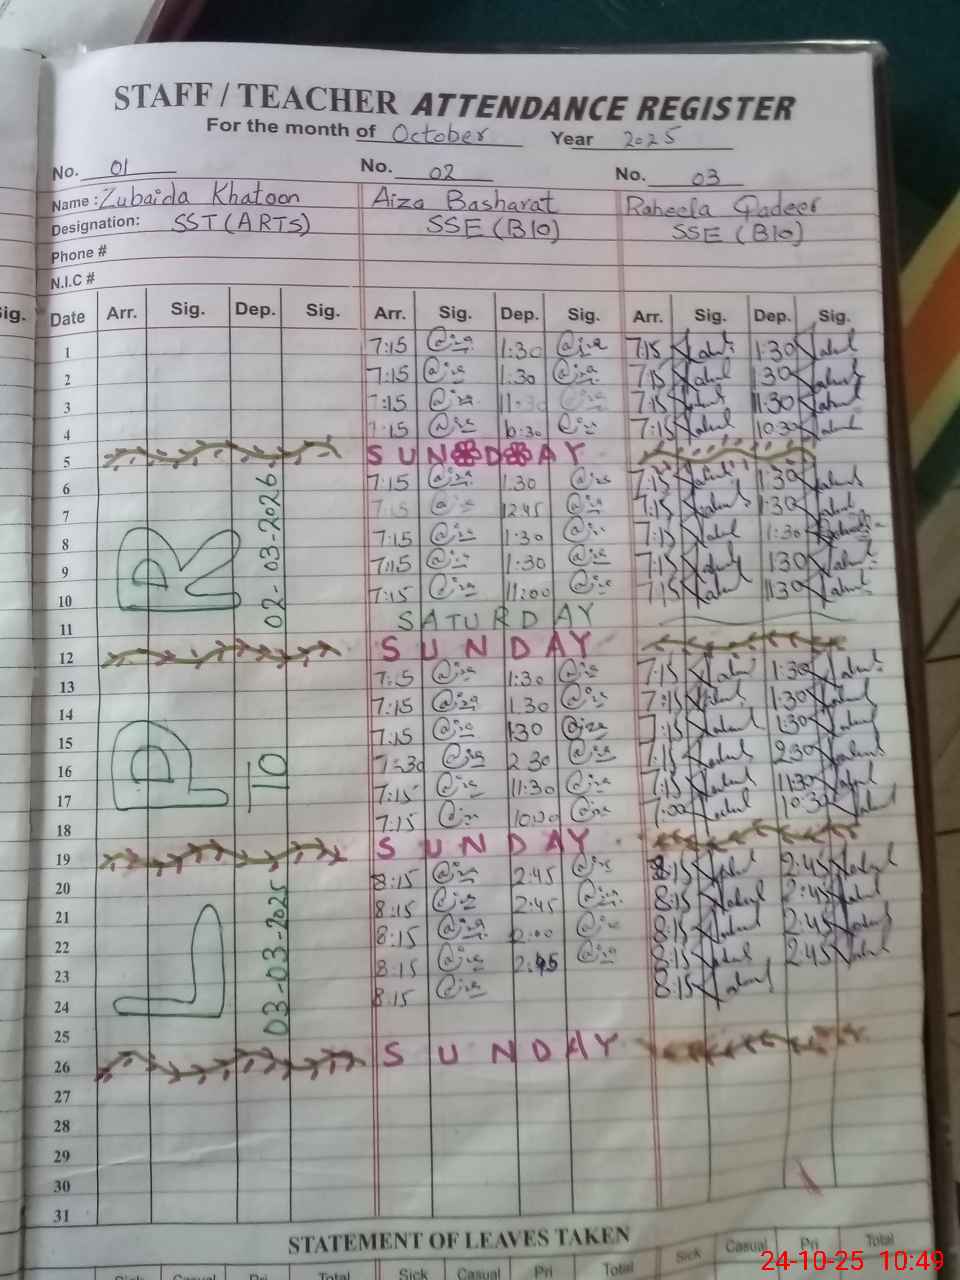 STAFF / TEACHER ATTENDANCE REGISTER
For the month of October Year 2025
No. 01 No. 02 No. 03
Name : Zubaida Khatoon Aiza Basharat Raheela Qadeer
Designation: SST (ARTS) SSE (BIO) SSE (BIO)
Phone #
N.I.C #
ig.
Date Arr. Sig. Dep. Sig. Arr. Sig. Dep. Sig. Arr. Sig. Dep. Sig.
1 7:15 1:30 7:15 1:30
2 7:15 1:30 7:15 1:30
3 7:15 11:30 7:15 11:30
4 7:15 10:30 7:15 10:30
5 SUNDAY
6 7:15 1:30 7:15 1:30
7 7:15 12:45 7:15 1:30
8 7:15 1:30 7:15 1:30
9 7:15 1:30 7:15 1:30
10 7:15 11:00 7:15 11:30
11 SATURDAY
12 SUNDAY
13 7:15 1:30 7:15 1:30
14 7:15 1:30 7:15 1:30
15 7:15 1:30 7:15 1:30
16 7:30 2:30 7:15 2:30
17 7:15 11:30 7:15 11:30
18 7:15 10:00 7:00 10:30
19 SUNDAY
20 8:15 2:45 8:15 2:45
21 8:15 2:45 8:15 2:45
22 8:15 2:00 8:15 2:45
23 8:15 2:45 8:15 2:45
24 8:15 8:15
25
26 SUNDAY
27
28
29
30
31
L P R
03-03-2025 TO 02-03-2026
STATEMENT OF LEAVES TAKEN
Sick Casual Pri Total Sick Casual Pri Total Sick Casual Pri Total
24-10-25 10:49